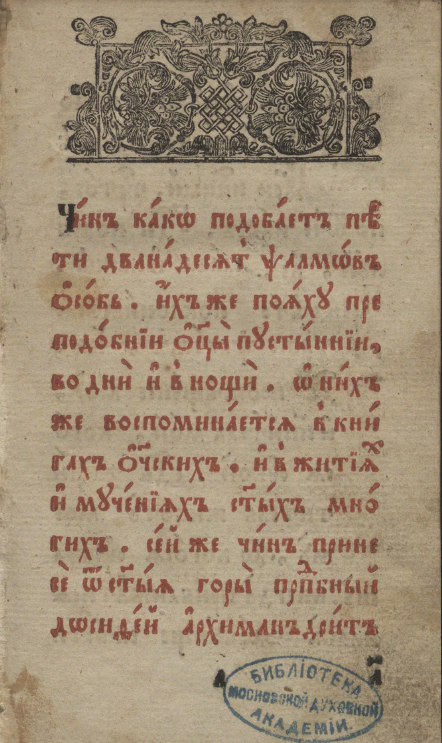 Чи́нъ ка́кѡ подоба́етъ пѣ́
ти двана́десѧт̾ ѱалмѡ́въ
ѻ҆со́бь. и҆̀хъже поѧ́ху пре
подо́бнїи ѻ҆ц҃ы̀ пꙋсты́ннїи,
во днѝ и҆ в̾нощѝ. ѡ҆ ни́хъ
же воспомина́етсѧ в̾кни́
гахъ ѻ҆ч҃скихъ. и҆ в̾житїѧ́х
и҆ мꙋче́нїѧхъ ст҃ы́хъ мно́
гихъ. се́й же чи́нъ прине
сѐ ѿ ст҃ы́ѧ горы̀ прпⷣбный
досиѳе́й а҆рхиманъдри́тъ
БИБЛІОТЕКА
МОСКОВСКОЙ ДУХОВНОЙ
АКАДЕМІИ.